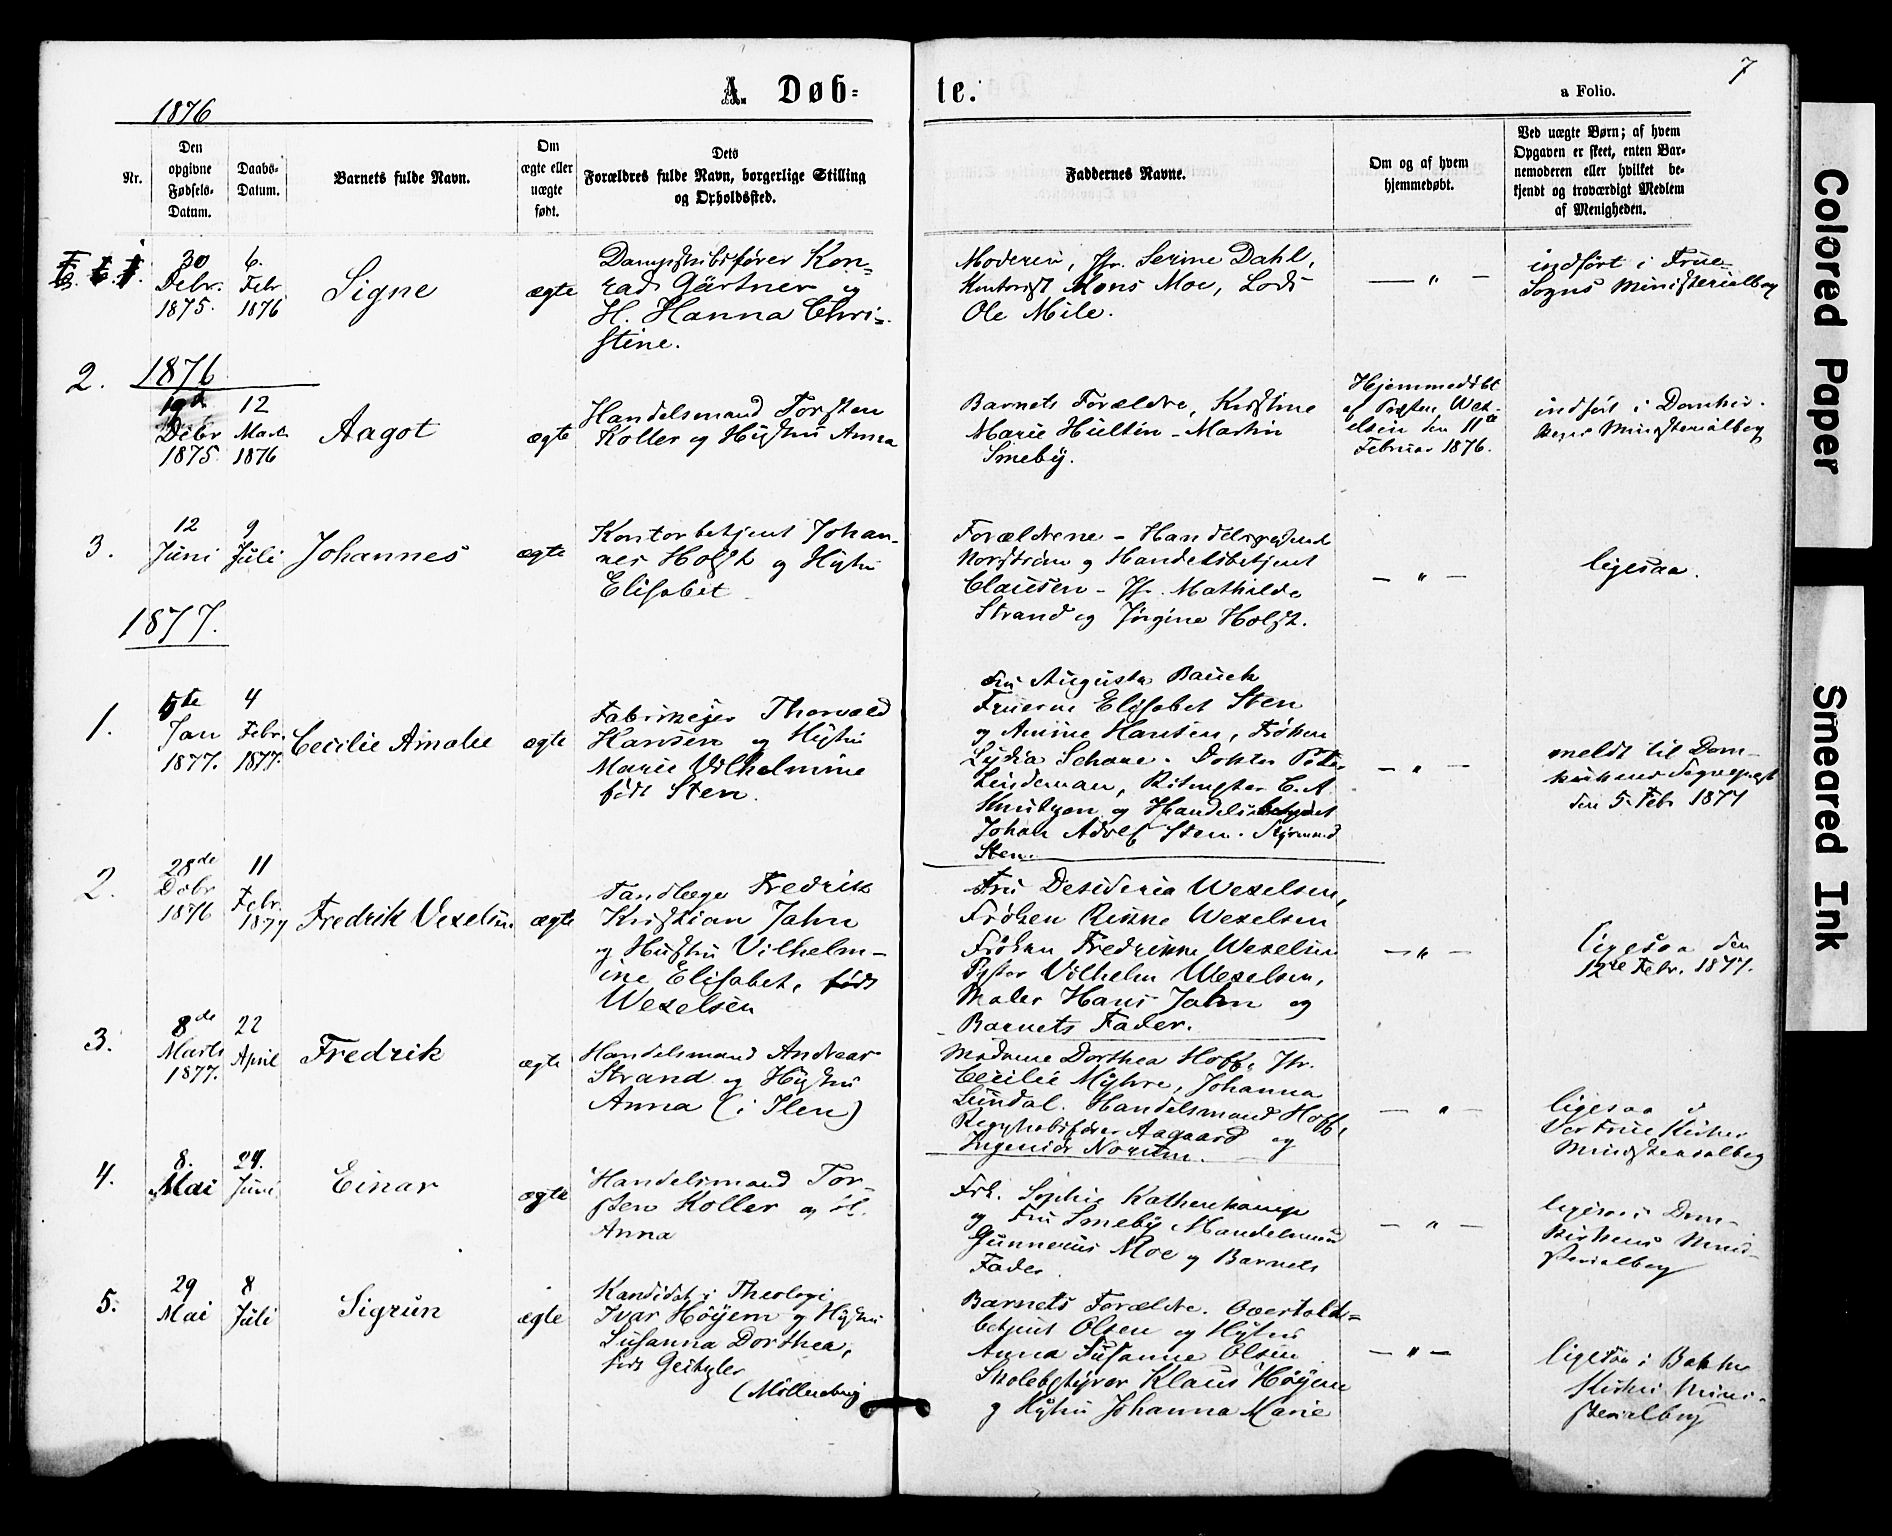 7
1876
A. Døb-
te.
a Folio.
Nr.
Den
opgivne
Fødsels-
Datum.
Daabs-
Datum.
Barnets fulde Navn.
Om
ægte eller
uægte
født.
Dets
Forældres fulde Navn, borgerlige Stilling
og Opholdssted.
Faddernes Navne.
Om og af hvem
hjemmedøbt.
Ved uægte Børn; af hvem
Opgaven er skeet, enten Bar-
nemoderen eller hvilket be-
kjendt og troværdigt Medlem
af Menigheden.
1.
30
Debr.
1875.
6.
Febr
1876
Signe
ægte
Dampskibsfører Kon-
rad Gärtner og
H. Hanna Chri-
stine.
Moderen, Jfr. Serine Dahl,
Kontorist Mons Moe, Lods
Ole Mile.
— " —
indført i Frue-
Sogns Ministerialbog
2.
1876
19de
Debr
1875
12
Marts
1876
Aagot
ægte
Handelsmand Torsten
Koller og Hustru Anna
Barnets Forældre, Kristine
Marie Hultin - Martin
Smeby.
Hjemmedøbt
af Presten Wex-
elsen den 11te
Februar 1876.
indført i Domkir-
kens Ministerialbog
3.
12
Juni
9
Juli
Johannes
ægte
Kontorbetjent Johan-
nes Holst og Hustru
Elisabet
Forældrene - Handelsbetjent
Norstrøm og Handelsbetjent
Clausen - Jfr. Mathilde
Strand og Jørgine Holst.
— " —
ligesaa.
1877.
1.
5te
Jan
1877.
4
Febr.
1877.
Cecilie Amalie
ægte
Fabrikeier Thorvald
Hansen og Hustru
Marie Vilhelmine
født Sten.
Fru Augusta Bauck
Fruerne Elisabet Sten
og Anine Hansen, Frøken
Lydia Schove. Doktor
Lindeman, Ritmester C. A.
Knutzon og Handelsbetjent
Johan Adolf Sten.
Sten.
— " —
meldt til Dom-
kirkens Sogneprest
den 5. Feb 1877
2.
28de
Debr
1876
11
Febr.
1877
Fredrik Vexelsen.
ægte
Tandlæge Fredrik
Kristian Jahn
og Hustru Vilhelm-
ine Elisabet, født
Wexelsen
Fru Desideria Wexelsen,
Frøken Rikke Wexelsen
Frøken Fredrikke Wexelsen
Prester Vilhelm Wexelsen,
Maler Hans Jahn og
Barnets Fader.
— " —
ligesaa den
12te Febr. 1877.
3.
8de
Marts
1877.
22
April
Fredrik
ægte
Handelsmand Andreas
Strand og Hustru
Anna (i Ilen)
Madame Dorthea Hoff, Jfr.
Cecilie Myhre, Johanna
Lundal. Handelsmand Hoff,
Regnskabsfører Aagaard og
Ingeniør Norum.
— " —
ligesaa i
Vor Frue Kirkes
Ministerialbog
4.
8.
Mai
24.
Juni
Einar
ægte
Handelsmand Tor-
sten Koller og H.
Anna
Frk. Sophie
og Fru Smeby Handelsmand
Gunnerius Moe og Barnets
Fader
— " —
ligesaa i Dom-
kirkens Mini-
sterialbog
5.
29
Mai
8
Juli
Sigrun
ægte
Kandidat i Theologi
Ivar Høyem og Hustru
Susanna Dorthea,
født
(Møllenberg
Barnets Forældre. Overtolds-
betjent Olsen og Hustru
Anna Susanne Olsen
Skolebestyrer Klaus Høyem
og Hustru Johanna Marie
— " —
ligesaa i Bakke
Kirkes Mini-
sterialbog
Colored Paper
Smeared Ink